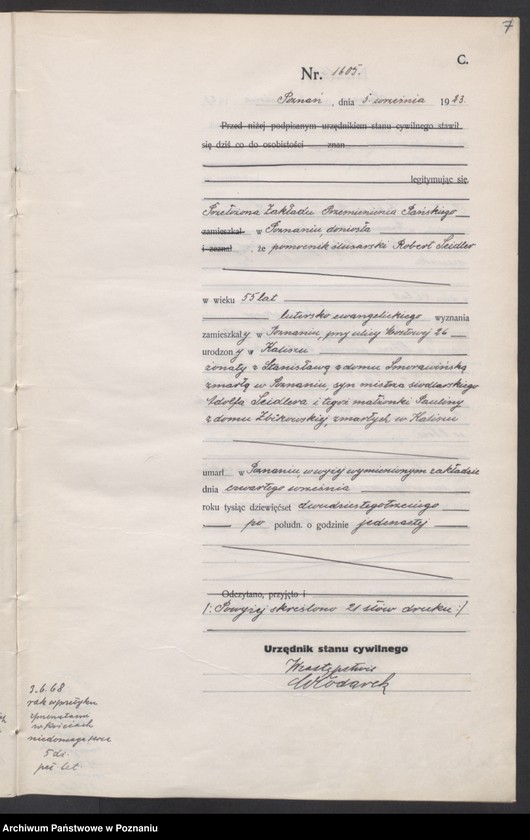 7
C.
Nr. 1605.
Poznań, dnia 5 września 1923.
Przed niżej podpisanym urzędnikiem stanu cywilnego stawił
się dziś co do osobistości znan
legitymując się
Przełożona Zakładu Przemienienia Pańskiego
zamieszkał w Poznaniu doniosła
i zeznał, że pomocnik ślusarski Robert Seidler
w wieku 55 lat
lutersko ewangelickiego wyznania
zamieszkały w Poznaniu, przy ulicy 26
urodzony w Kaliszu
żonaty z Stanisławą z domu Smorawińską
zmarłą w Poznaniu, syn mistrza siodlarskiego
Adolfa Seidlera i tegoż małżonki Pauliny
z domu Zbikowskiej, zmarłych w Kaliszu
umarł w Poznaniu, w wyżej wymienionym zakładzie
dnia czwartego września
roku tysiąc dziewięćset dwudziestego trzeciego
po połudn. o godzinie jedenastej
Odczytano, przyjęto i
/: Powyżej skreślono 21 słów druku :/
Urzędnik stanu cywilnego
W zastępstwie
Włodarek
3.6.68
rak w przełyku
w kościach
niedomoga serca
5 dz.
Archiwum Państwowe w Poznaniu